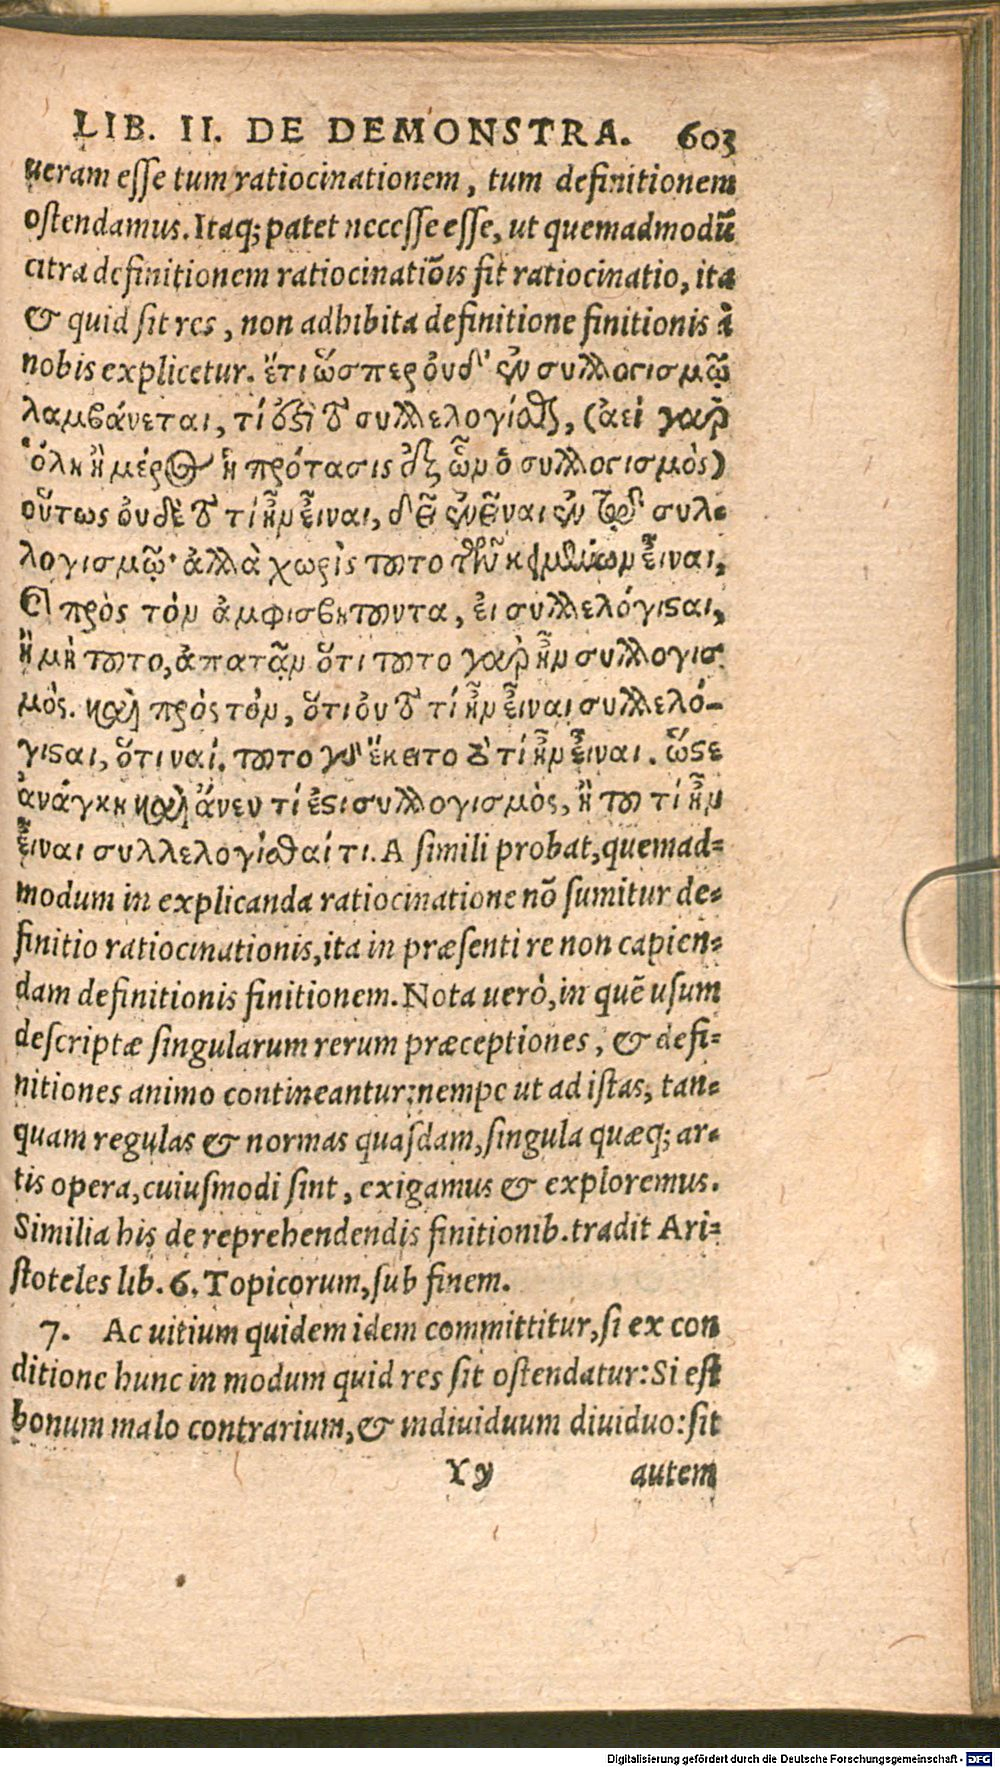 LIB. II. DE DEMONSTRA. 603
ueram esse tum ratiocinationem, tum definitionem
ostendamus. Itaq; patet necesse esse, ut quemadmodũ
citra definitionem ratiocinatiõis sit ratiocinatio, ita
& quid sit res, non adhibita definitione finitionis à
nobis explicetur. ἔτι ὥσπερ ὀυδ' ἐν συλλογισμῷ
λαμβάνεται, τί ὅτι τὸ συλλελογίσθαι, (ἀεὶ γὰρ
ὅλη ἢ μέρος ἡ πρότασις ἐξ ὧν ὁ συλλογισμὸς)
οὕτως ὀυδὲ τὸ τί ἦν εἶναι, δεῖ ἐνεῖναι ἐν τῷ συλ-
λογισμῷ· ἀλλὰ χωρὶς τοῦτο τῶν κειμένων εἶναι,
καὶ πρὸς τὸν ἀμφισβητοῦντα, εἰ συλλελόγισαι,
ἢ μὴ τοῦτο, ἀπατᾷν ὅτι τοῦτο γὰρ ἦν συλλογισ
μός. καὶ πρὸς τὸν, ὅτι ὀυ τὸ τί ἦν εἶναι συλλελό-
γισαι, ὅτι ναί. τοῦτο γὰρ ἔκειτο τὸ τί ἦν εἶναι. ὥστε
ἀνάγκη καὶ ἄνευ τί ἐστι συλλογισμὸς, ἢ τοῦ τί ἦν
εἶναι συλλελογίσθαί τι. A simili probat, quemad-
modum in explicanda ratiocinatione nõ sumitur de-
finitio ratiocinationis, ita in præsenti re non capien-
dam definitionis finitionem. Nota uerò, in quẽ usum
descriptæ singularum rerum præceptiones, & defi-
nitiones animo contineantur: nempe ut ad istas, tan-
quam regulas & normas quasdam, singula quæq; ar-
tis opera, cuiusmodi sint, exigamus & exploremus.
Similia his de reprehendendis finitionib. tradit Ari-
stoteles lib. 6. Topicorum, sub finem.
7. Ac uitium quidem idem committitur, si ex con
ditione hunc in modum quid res sit ostendatur: Si est
bonum malo contrarium, & indiuiduum diuiduo: sit
Yy autem
Digitalisierung gefördert durch die Deutsche Forschungsgemeinschaft - DFG